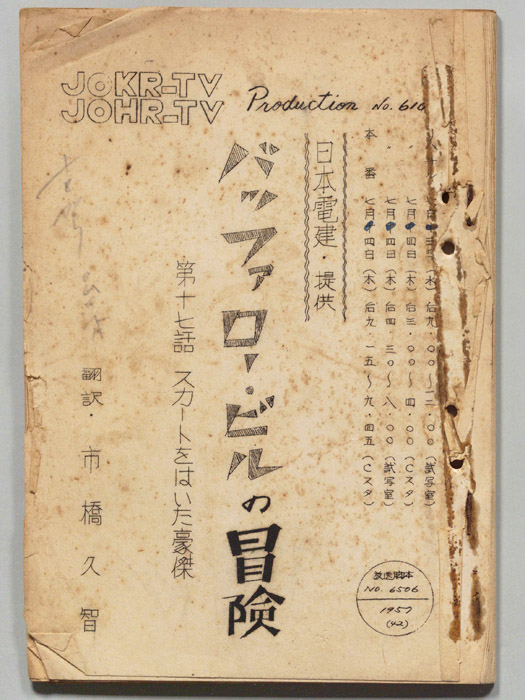 JOKR-TV
JOHR-TV
Production No. 610
(木) 后九・〇〇〜一二・〇〇 (試写室)
〃 七月四日 (木) 后三・〇〇〜四・〇〇 (Cスタ)
七月四日 (木) 后四・三〇〜八・〇〇 (試写室)
本番 七月四日 (木) 后九・一五〜九・四五 (Cスタ)
日本電建・提供
バッファロー・ビルの冒険
第十七話 スカートをはいた豪傑
翻訳・市橋久智
放送脚本
NO. 6506
1957
(42)